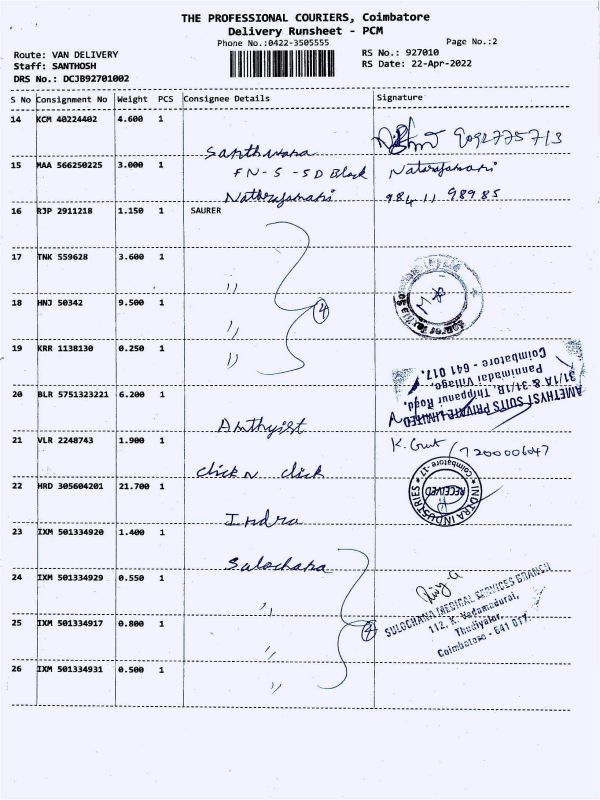 THE PROFESSIONAL COURIERS, Coimbatore
Delivery Runsheet - PCM
Phone No.:0422-3505555
Page No.:2
Route: VAN DELIVERY
Staff: SANTHOSH
DRS No.: DCJB92701002
RS No.: 927010
RS Date: 22-Apr-2022
S No Consignment No Weight PCS Consignee Details Signature
14 KCM 40224402 4.600 1
Santhwana 9092775713
15 MAA 566250225 3.000 1 FN-S-SD Block Natarajamani
Natarajamani 98411 98985
16 RJP 2911218 1.150 1 SAURER
17 TNK 559628 3.600 1
"
18 HNJ 50342 9.500 1 4
"
19 KRR 1138130 0.250 1
"
20 BLR 5751323221 6.200 1
AMETHYST SUITS PRIVATE LIMITED
31/1A & 31/1B, Thippanur Road,
Pannimadai Village,
Coimbatore - 641 017.
Amthyist
21 VLR 2248743 1.900 1
7200006047
Click n Click
22 HRD 305604201 21.700 1
INDRA INDUSTRIES
RECEIVED
Coimbatore-17
Indra
23 IXM 501334920 1.400 1
Sulochana
24 IXM 501334929 0.550 1
"
25 IXM 501334917 0.800 1 4
SULOCHANA MEDICAL SERVICES BRANCH
112, K. Vadamadurai,
Thudiyalur,
Coimbatore - 641 017.
"
26 IXM 501334931 0.500 1
"